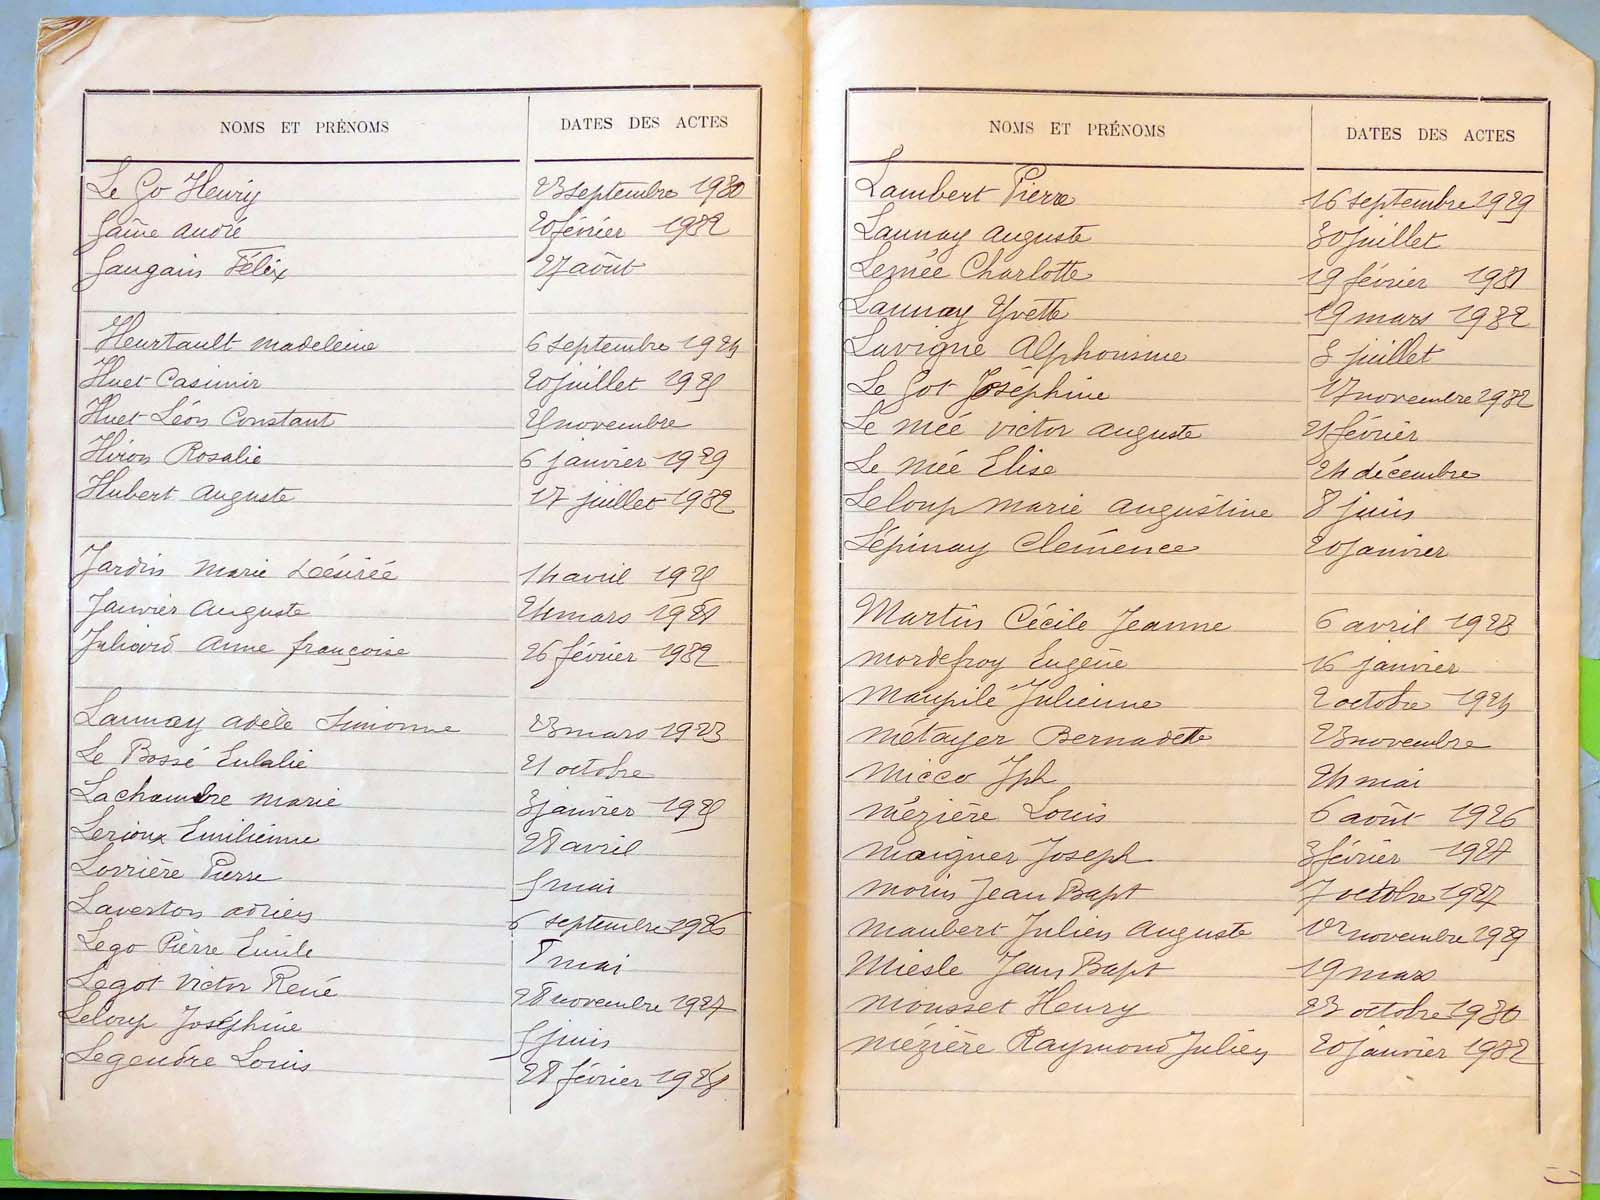 NOMS ET PRÉNOMS DATES DES ACTES
Le Go Henry 23 septembre 1930
Gaîne André 20 février 1932
Gaugain Félix 27 août
Heurtault Madeleine 6 septembre 1924
Huet Casimir 20 juillet 1925
Huet Léon Constant 25 novembre
Hiron Rosalie 6 janvier 1929
Hubert Auguste 17 juillet 1932
Jardin Marie Désirée 14 avril 1925
Janvier Auguste 24 mars
Juliard Anne françoise 26 février 1932
Launay Adèle Simonne 23 mars 1923
Le Bossé Eulalie 21 octobre
Lachambre Marie 3 janvier 1925
Lerioux Emilienne 28 avril
Lorrière Pierre 5 mai
Laverton Adrien 6 septembre 1926
Lego Pierre Emile 8 mai
Legot Victor René 28 novembre 1927
Leloup Joséphine 5 juin
Legendre Louis 28 février 1928
NOMS ET PRÉNOMS DATES DES ACTES
Lambert Pierre 16 septembre 1929
Launay Auguste 30 juillet
Leznée Charlotte 19 février 1931
Launay Yvette 19 mars 1932
Lavigne Alphonsine 8 juillet
Le Got Joséphine 17 novembre 1932
Le Mée Victor Auguste 21 février
Le Mée Elise 24 décembre
Leloup Marie Augustine 8 juin
Lépinay Clémence 20 janvier
Martin Cécile Jeanne 6 avril 1923
Mordefroy Eugène 16 janvier
Maupilé Julienne 2 octobre 1924
Métayer Bernadette 23 novembre
Micco Jph 24 mai
Mézière Louis 6 août 1926
Maigner Joseph 3 février 1927
Morin Jean Bapt 7 octobre 1927
Maubert Julien Auguste 12 novembre 1929
Miesle Jean Bapt 19 mars
Mousset Henry 23 octobre 1930
Mézière Raymond Julien 20 janvier 1932